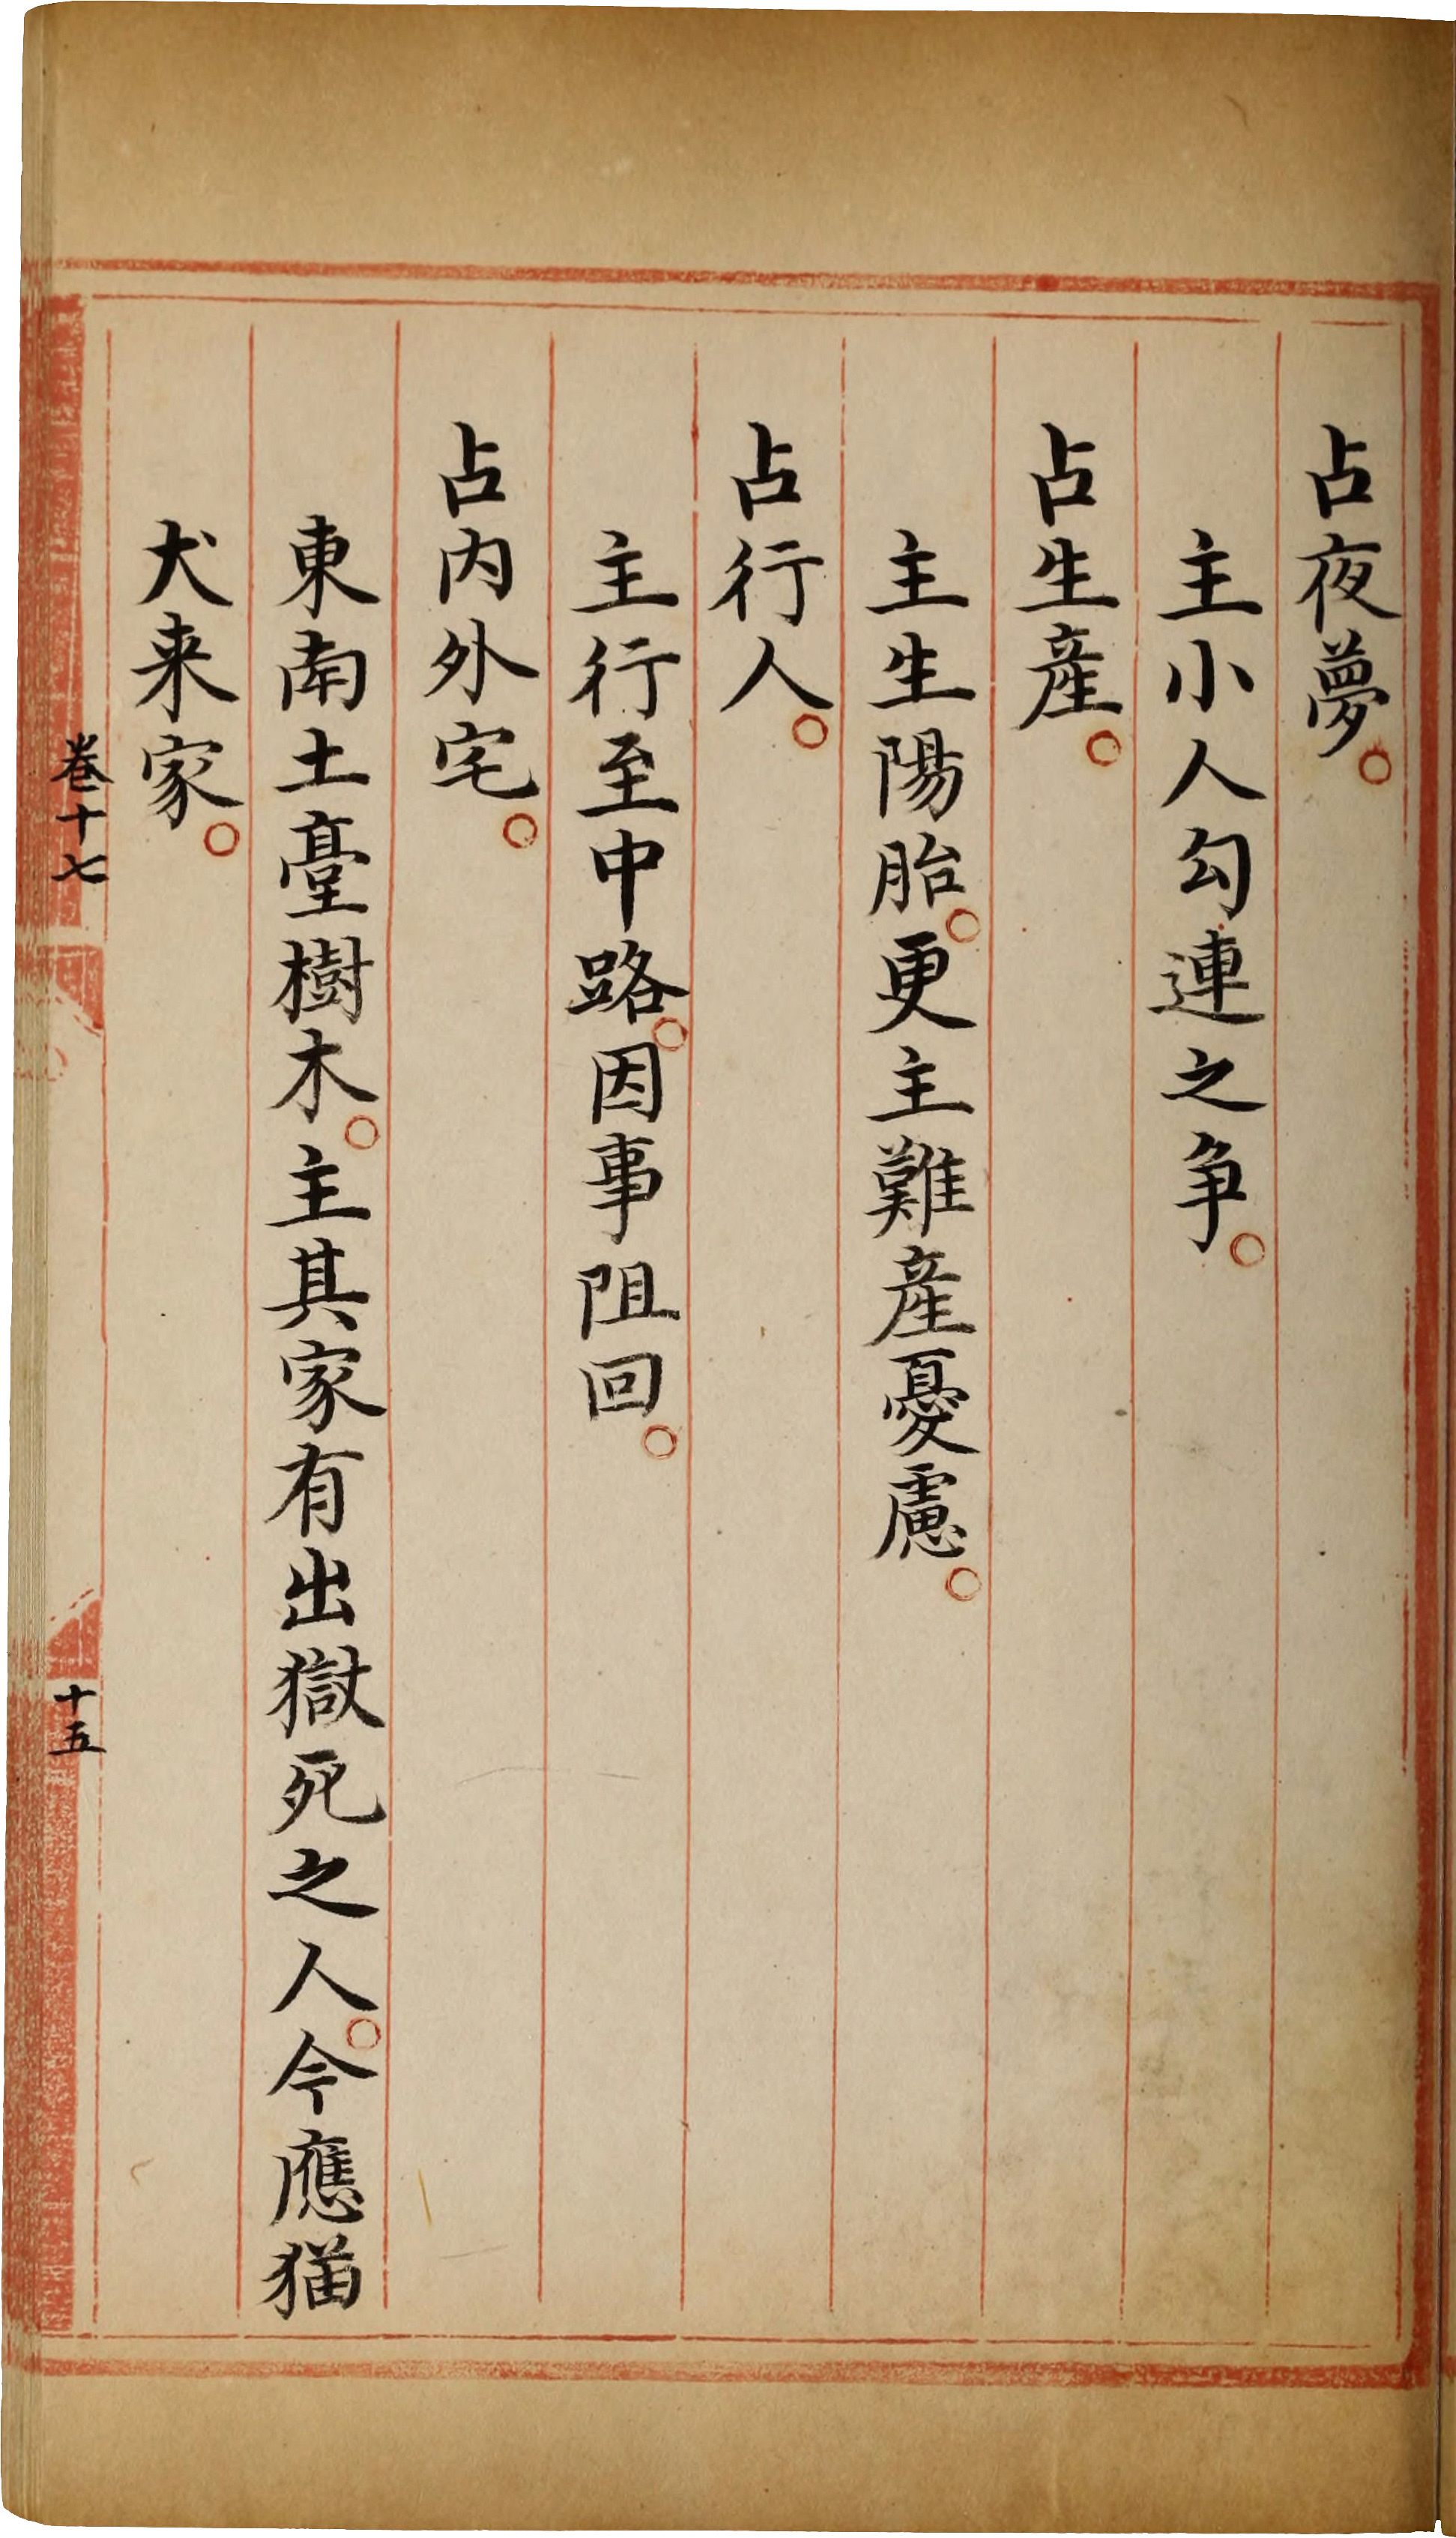 占夜夢。
主小人勾連之爭。
占生產。
主生陽胎。更主難產憂慮。
占行人。
主行至中路。因事阻回。
占內外宅。
東南土臺樹木。主其家有出獄死之人。今應猫
犬来家。
卷十七
十五